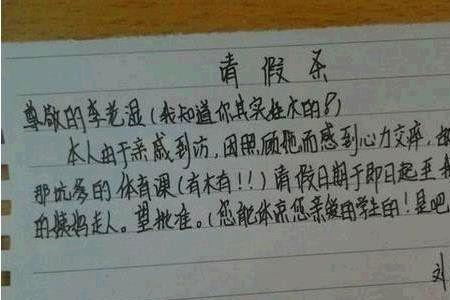 请假条
尊敬的李老湿(我知道你其实姓水的!)
本人由于亲戚到访,因照顾他而感到心力交瘁,故
那坑爹的体育课(有木有!!)请假日期于即日起至我
的姨妈走人。望批准。(您能体谅您亲爱的学生的!是吧
刘